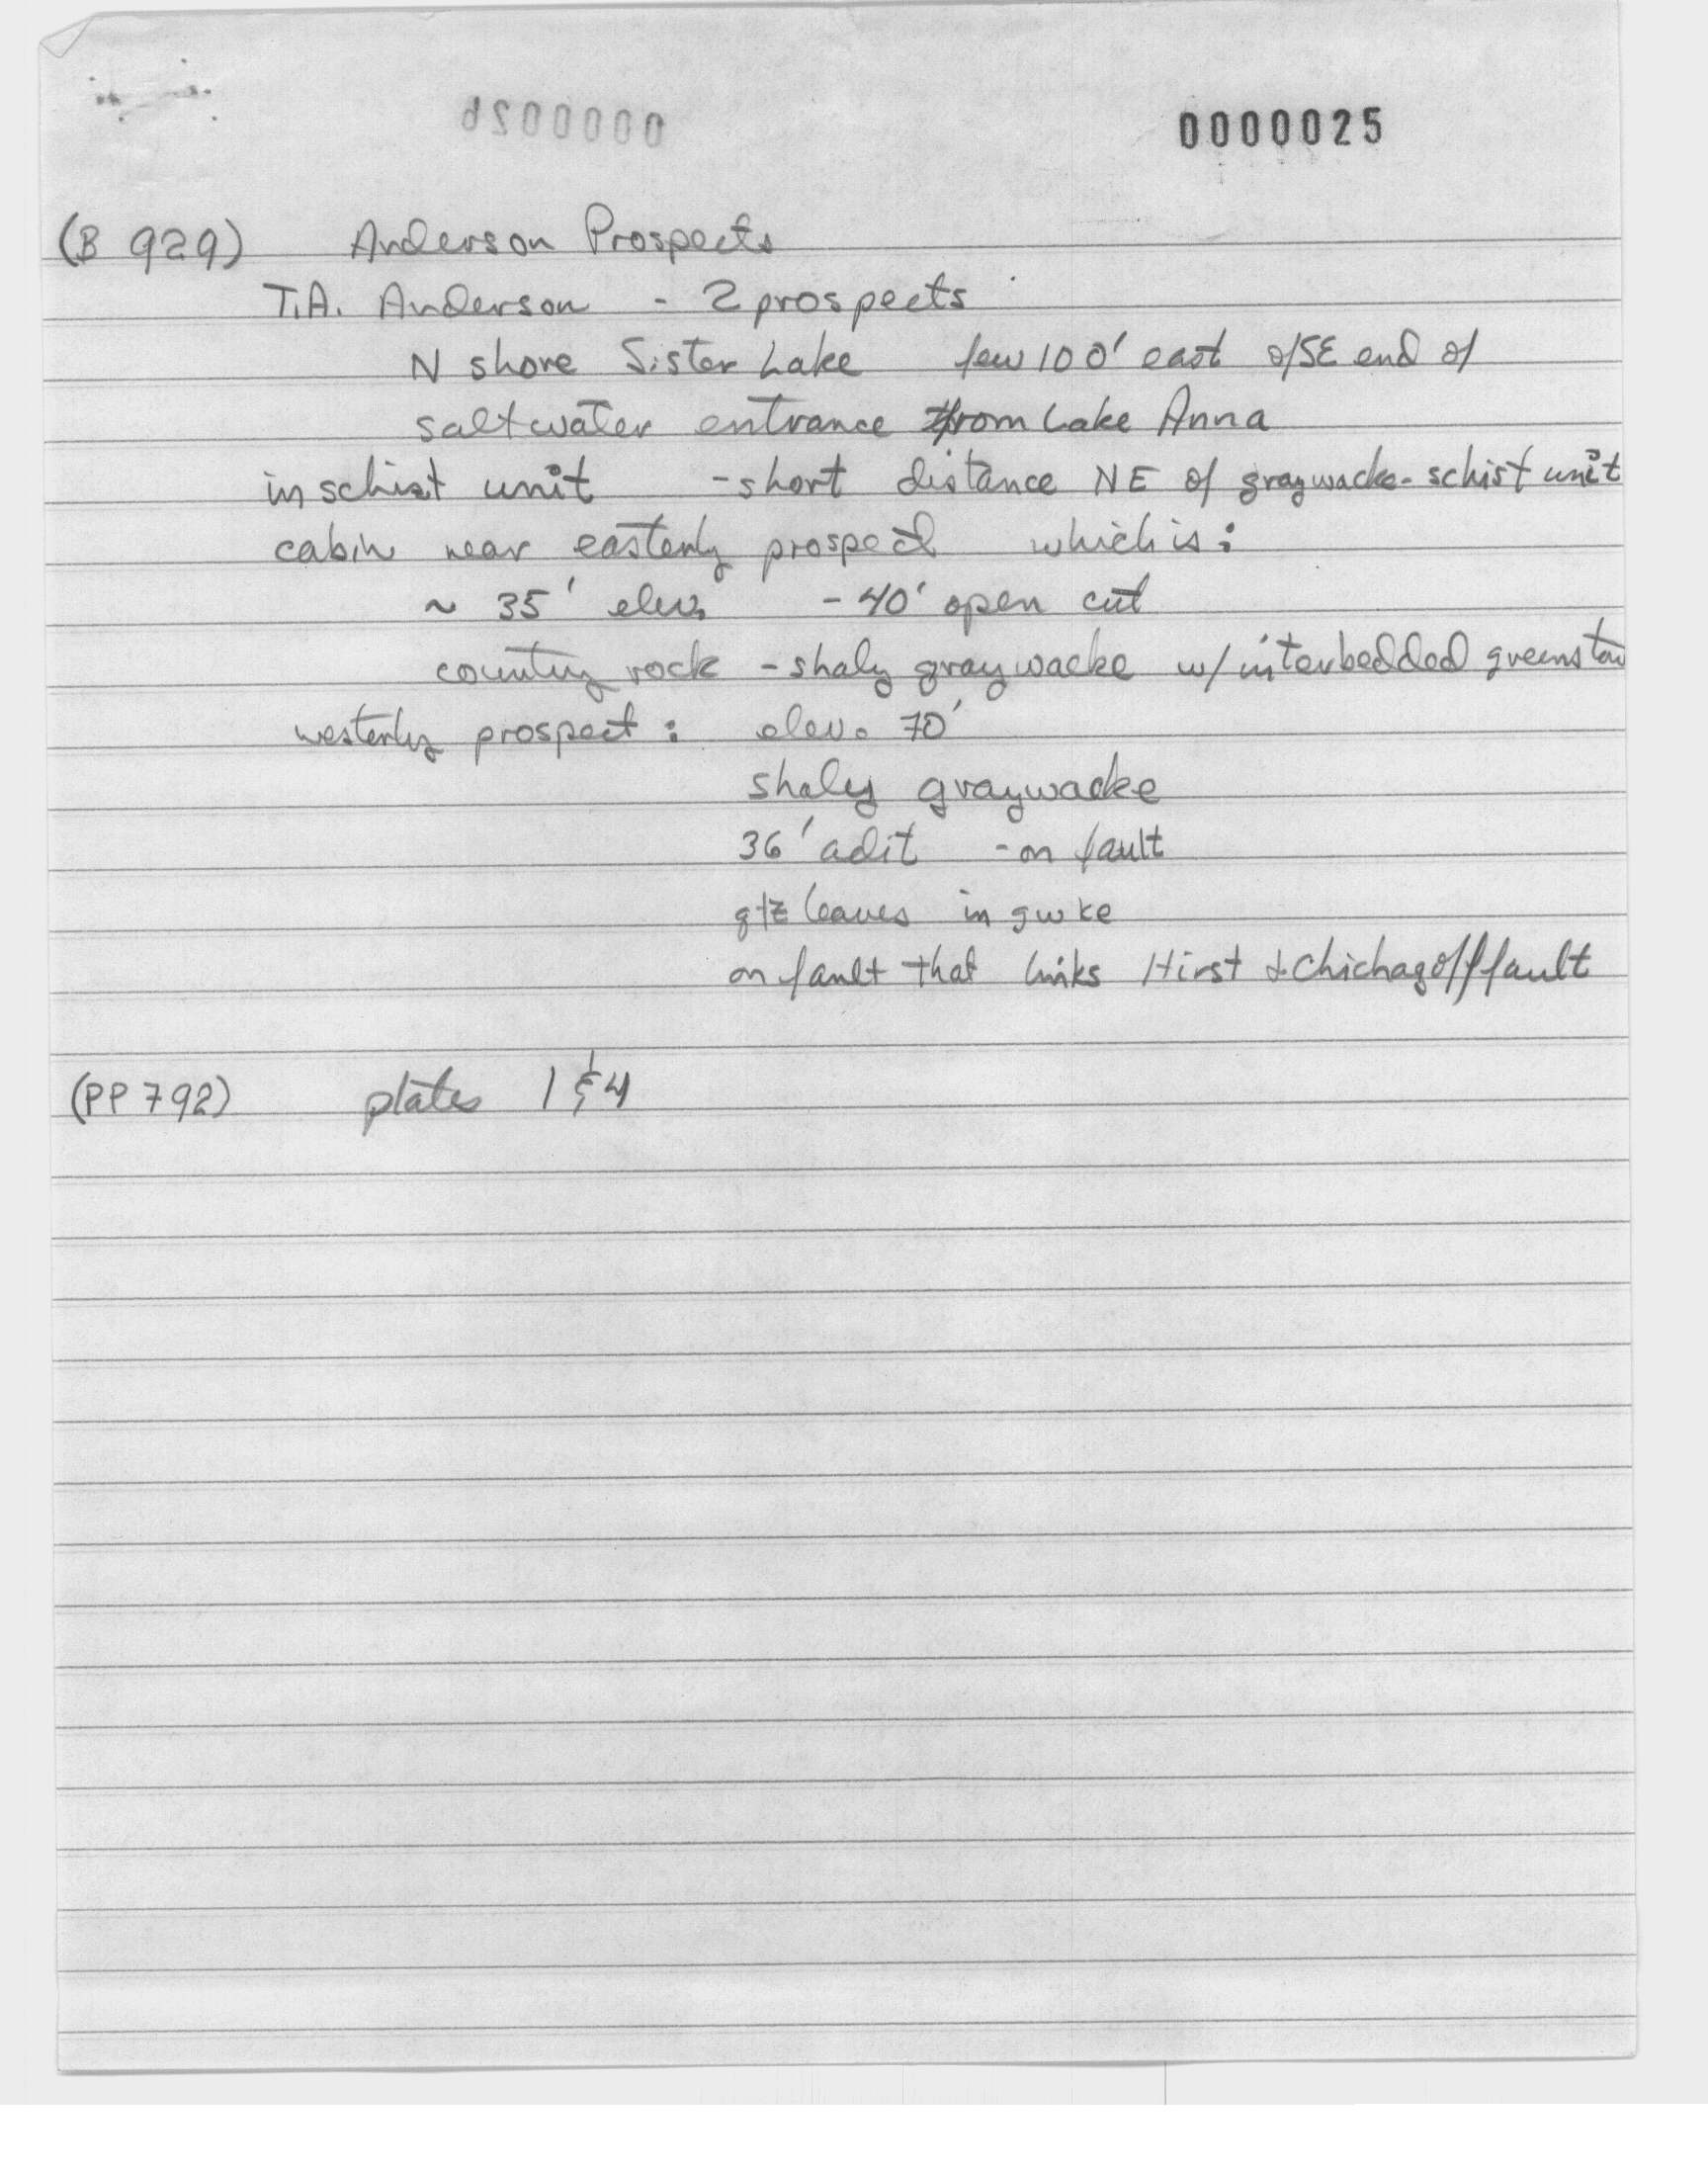 0000025
(B 929) Anderson Prospects
T.A. Anderson - 2 prospects
N shore Sister Lake few 100' east of SE end of
saltwater entrance from Lake Anna
in schist unit - short distance NE of graywacke-schist unit
cabin near easterly prospect which is:
~ 35' elev. - 40' open cut
country rock - shaly graywacke w/ interbedded greenston
westerly prospect: elev. 70'
shaly graywacke
36' adit - on fault
qtz leaves in gwke
on fault that links Hirst & Chichagoff fault
(PP 792) plates 1 & 4